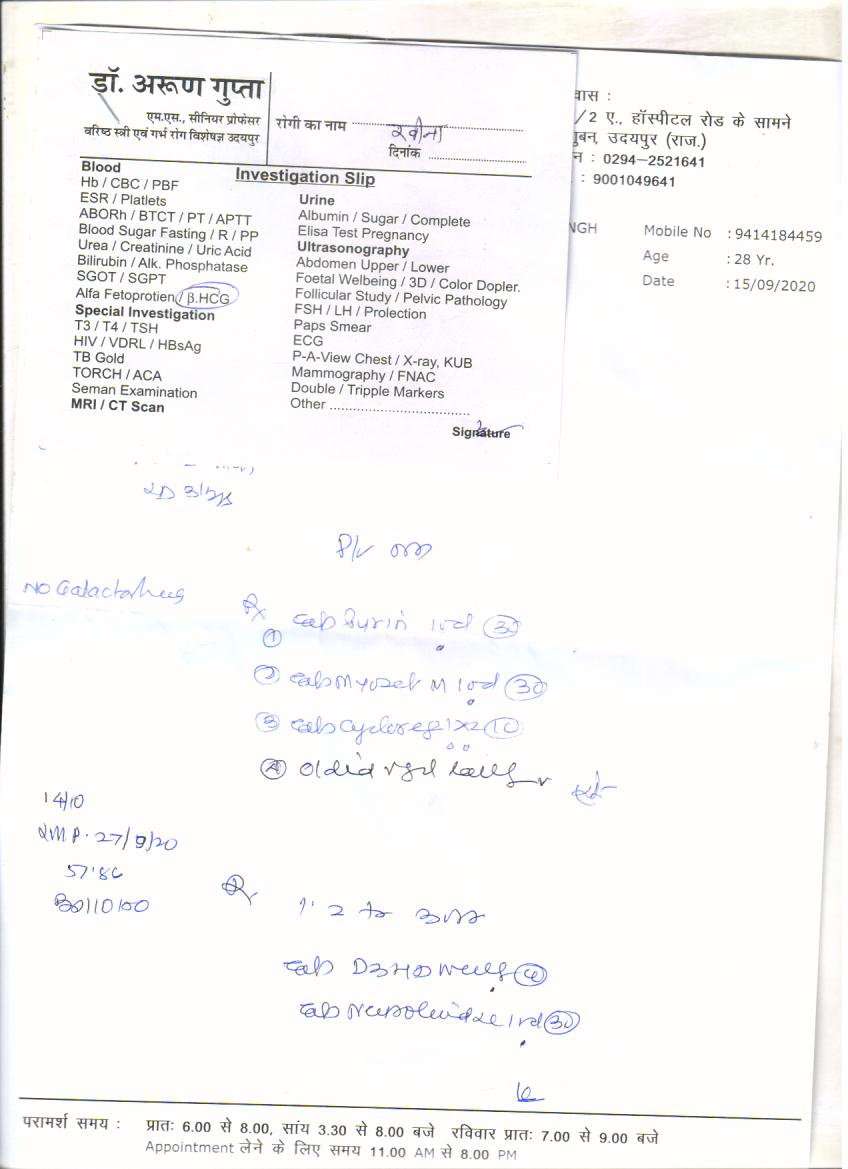 डॉ. अरूण गुप्ता
एम.एस., सीनियर प्रोफेसर
वरिष्ठ स्त्री एवं गर्भ रोग विशेषज्ञ उदयपुर
रोगी का नाम
दिनांक
Investigation Slip
Blood
Hb / CBC / PBF
ESR / Platlets
ABORh / BTCT / PT / APTT
Blood Sugar Fasting / R / PP
Urea / Creatinine / Uric Acid
Bilirubin / Alk. Phosphatase
SGOT / SGPT
Alfa Fetoprotien / β.HCG
Special Investigation
T3 / T4 / TSH
HIV / VDRL / HBsAg
TB Gold
TORCH / ACA
Seman Examination
MRI / CT Scan
Urine
Albumin / Sugar / Complete
Elisa Test Pregnancy
Ultrasonography
Abdomen Upper / Lower
Foetal Welbeing / 3D / Color Dopler.
Follicular Study / Pelvic Pathology
FSH / LH / Prolection
Paps Smear
ECG
P-A-View Chest / X-ray, KUB
Mammography / FNAC
Double / Tripple Markers
Other
Signature
वास :
/2 ए., हॉस्पीटल रोड के सामने
ुबन, उदयपुर (राज.)
न : 0294-2521641
: 9001049641
NGH
Mobile No : 9414184459
Age : 28 Yr.
Date : 15/09/2020
P/V
No
Rx
① Tab 1 od 30
② Tab M 1 od 30
③ Tab 1x2 10
④
14/10
LMP. 27/9/20
Rx
Tab D3 HD 4
Tab 1 od 30
परामर्श समय : प्रातः 6.00 से 8.00, सांय 3.30 से 8.00 बजे रविवार प्रातः 7.00 से 9.00 बजे
Appointment लेने के लिए समय 11.00 AM से 8.00 PM